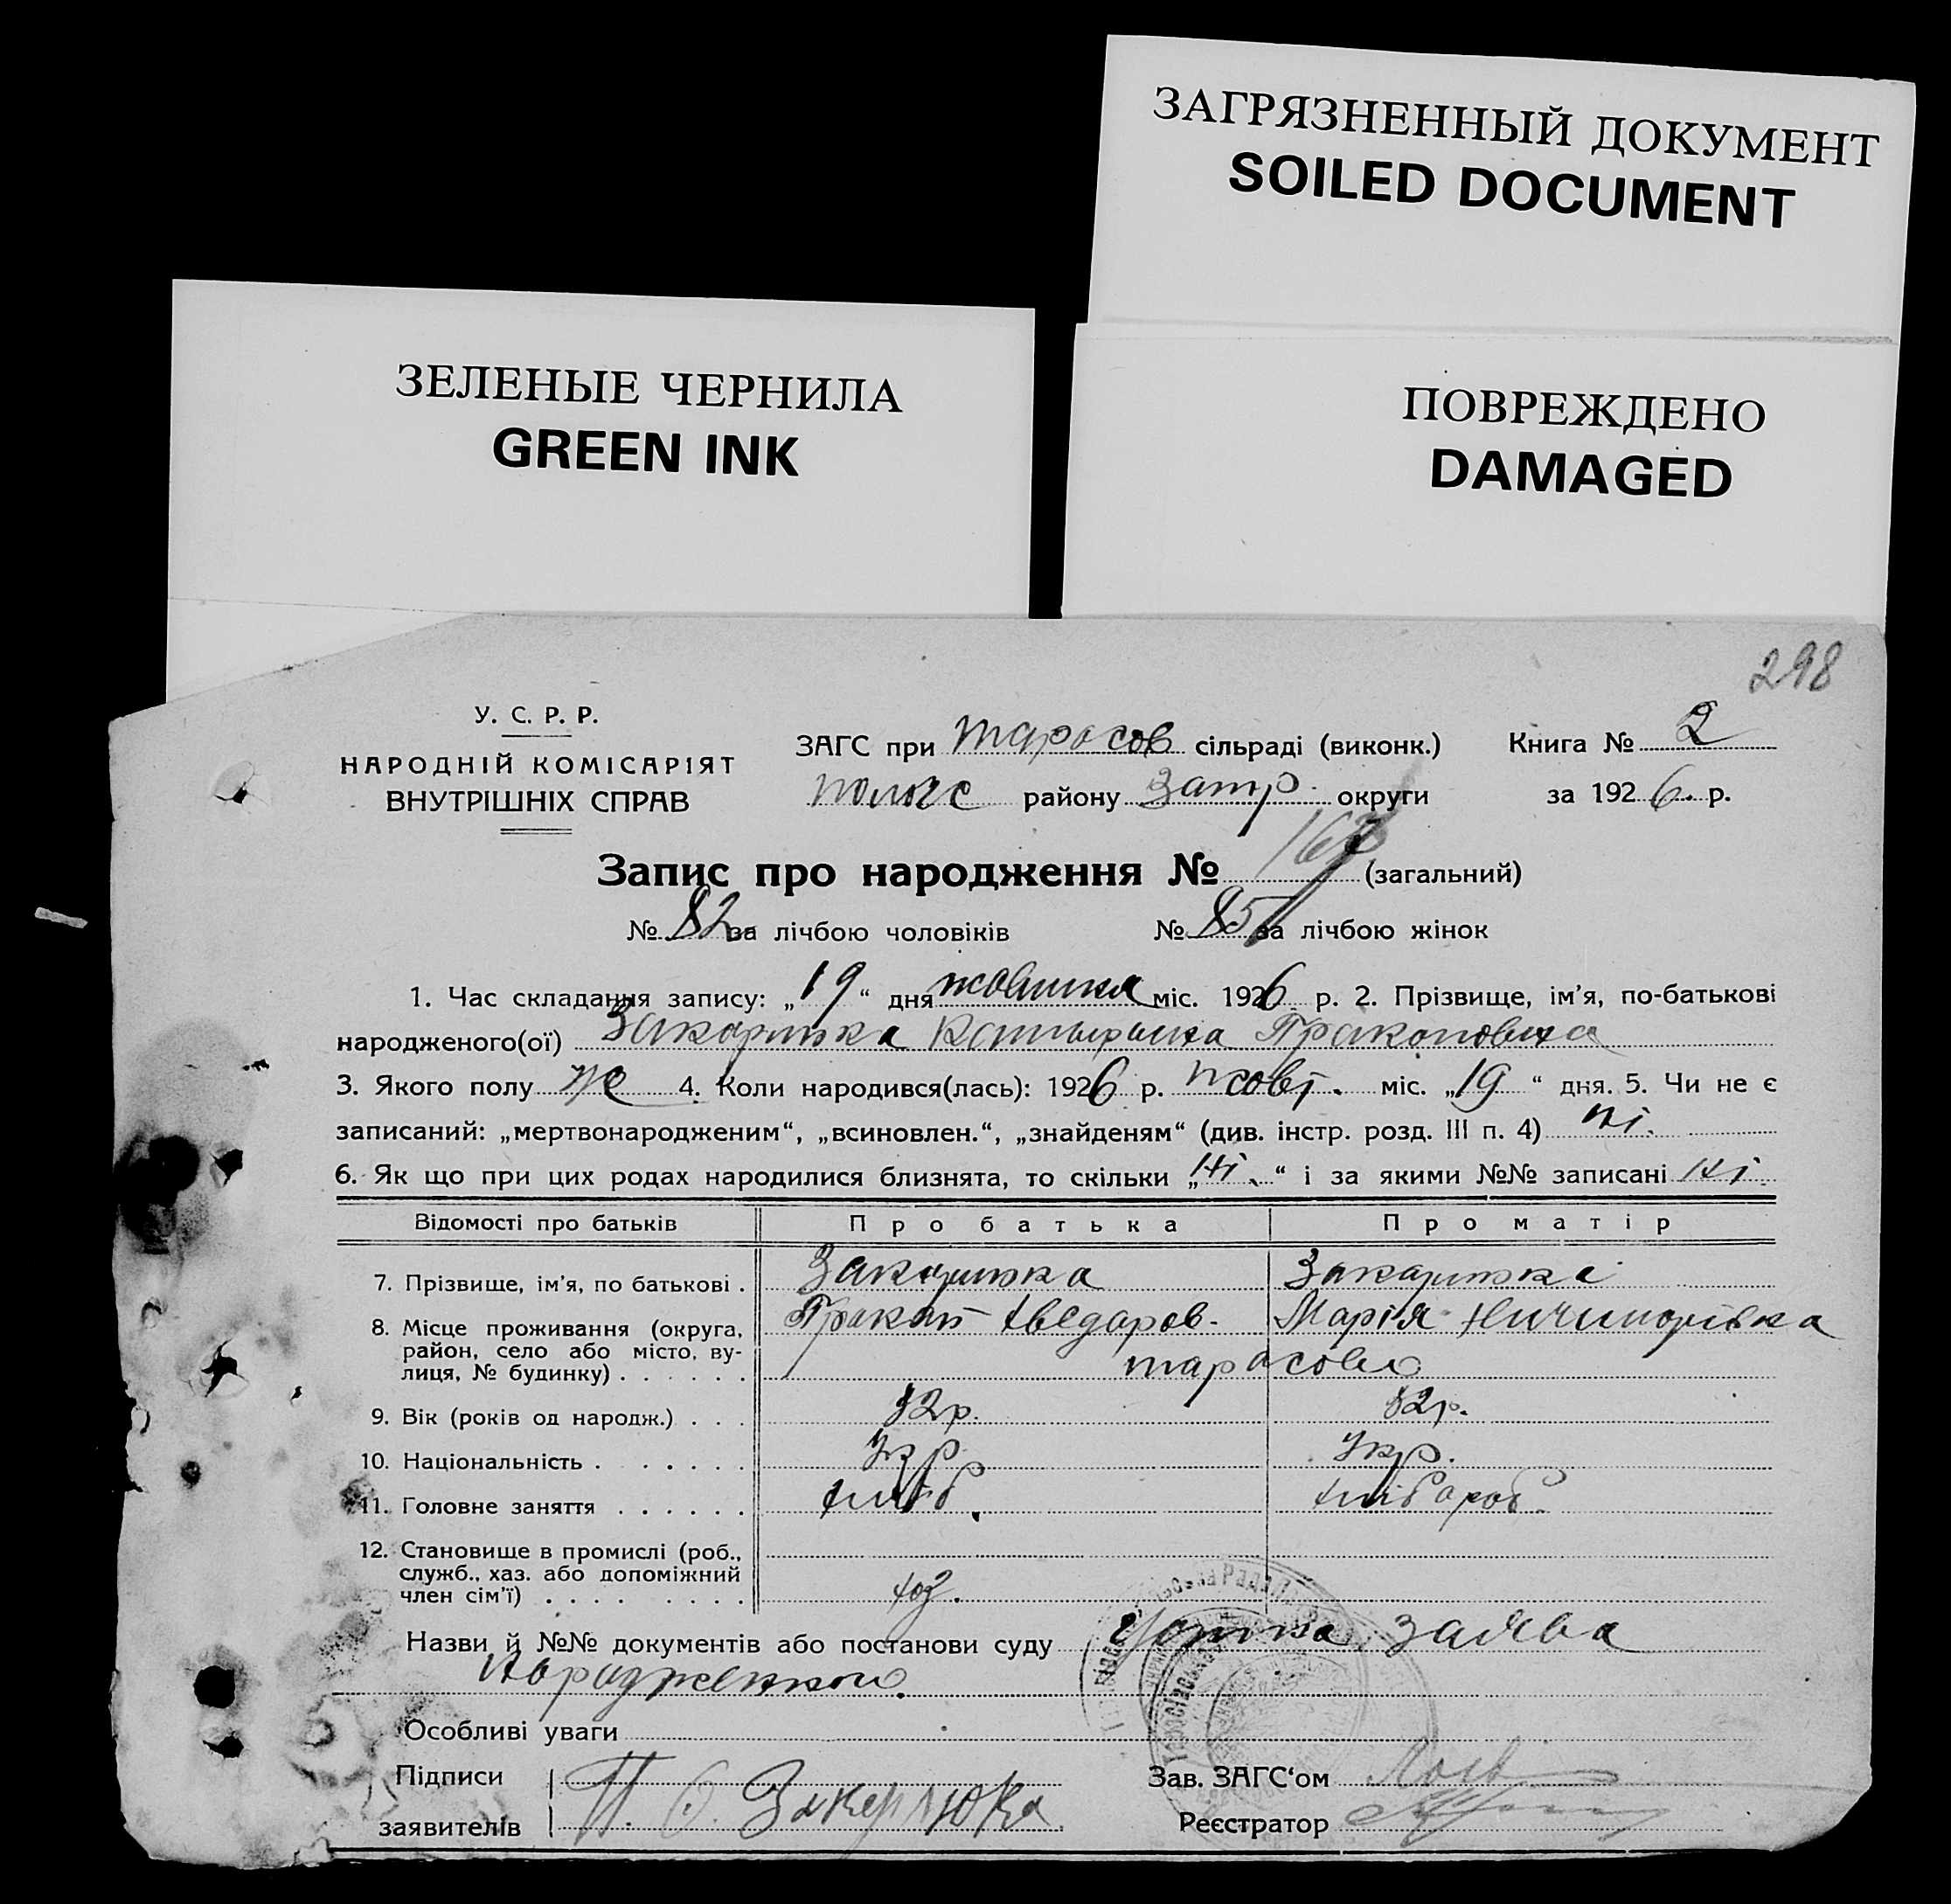 ЗАГРЯЗНЕННЫЙ ДОКУМЕНТ
SOILED DOCUMENT
ЗЕЛЕНЫЕ ЧЕРНИЛА
GREEN INK
ПОВРЕЖДЕНО
DAMAGED
298
У. С. Р. Р.
НАРОДНІЙ КОМІСАРІЯТ
ВНУТРІШНІХ СПРАВ
ЗАГС при Тарасов сільраді (виконк.) Книга № 2
полог району Запр. округи за 1926. р.
Запис про народження № 167 (загальний)
№ 82 за лічбою чоловіків № 85 за лічбою жінок
1. Час складання запису: „19“ дня жовтня міс. 1926 р. 2. Прізвище, ім’я, по-батькові
народженого(ої) Закарлюка
3. Якого полу же 4. Коли народився(лась): 1926 р. жовт. міс. „19“ дня. 5. Чи не є
записаний: „мертвонародженим“, „всиновлен.“, „знайденям“ (див. інстр. розд. III п. 4) ні.
6. Як що при цих родах народилися близнята, то скільки „ні.“ і за якими №№ записані ні
Відомості про батьків Про батька Про матір
7. Прізвище, ім’я, по батькові . Закарлюка Закарлюка
8. Місце проживання (округа, Марія
район, село або місто, ву-
лиця, № будинку) . . . . . .
9. Вік (років од народж.) . . . 32р. 32р.
10. Національність . . . . . . Укр. Укр.
11. Головне заняття . . . . . . хліб. хлібороб.
12. Становище в промислі (роб.,
служб., хаз. або допоміжний
член сім’ї) . . . . . . . . . хоз.
Назви й №№ документів або постанови суду Устна заява
Особливі уваги
Підписи
заявителів П. Ф. Закарлюка
Зав. ЗАГС‘ом
Реєстратор